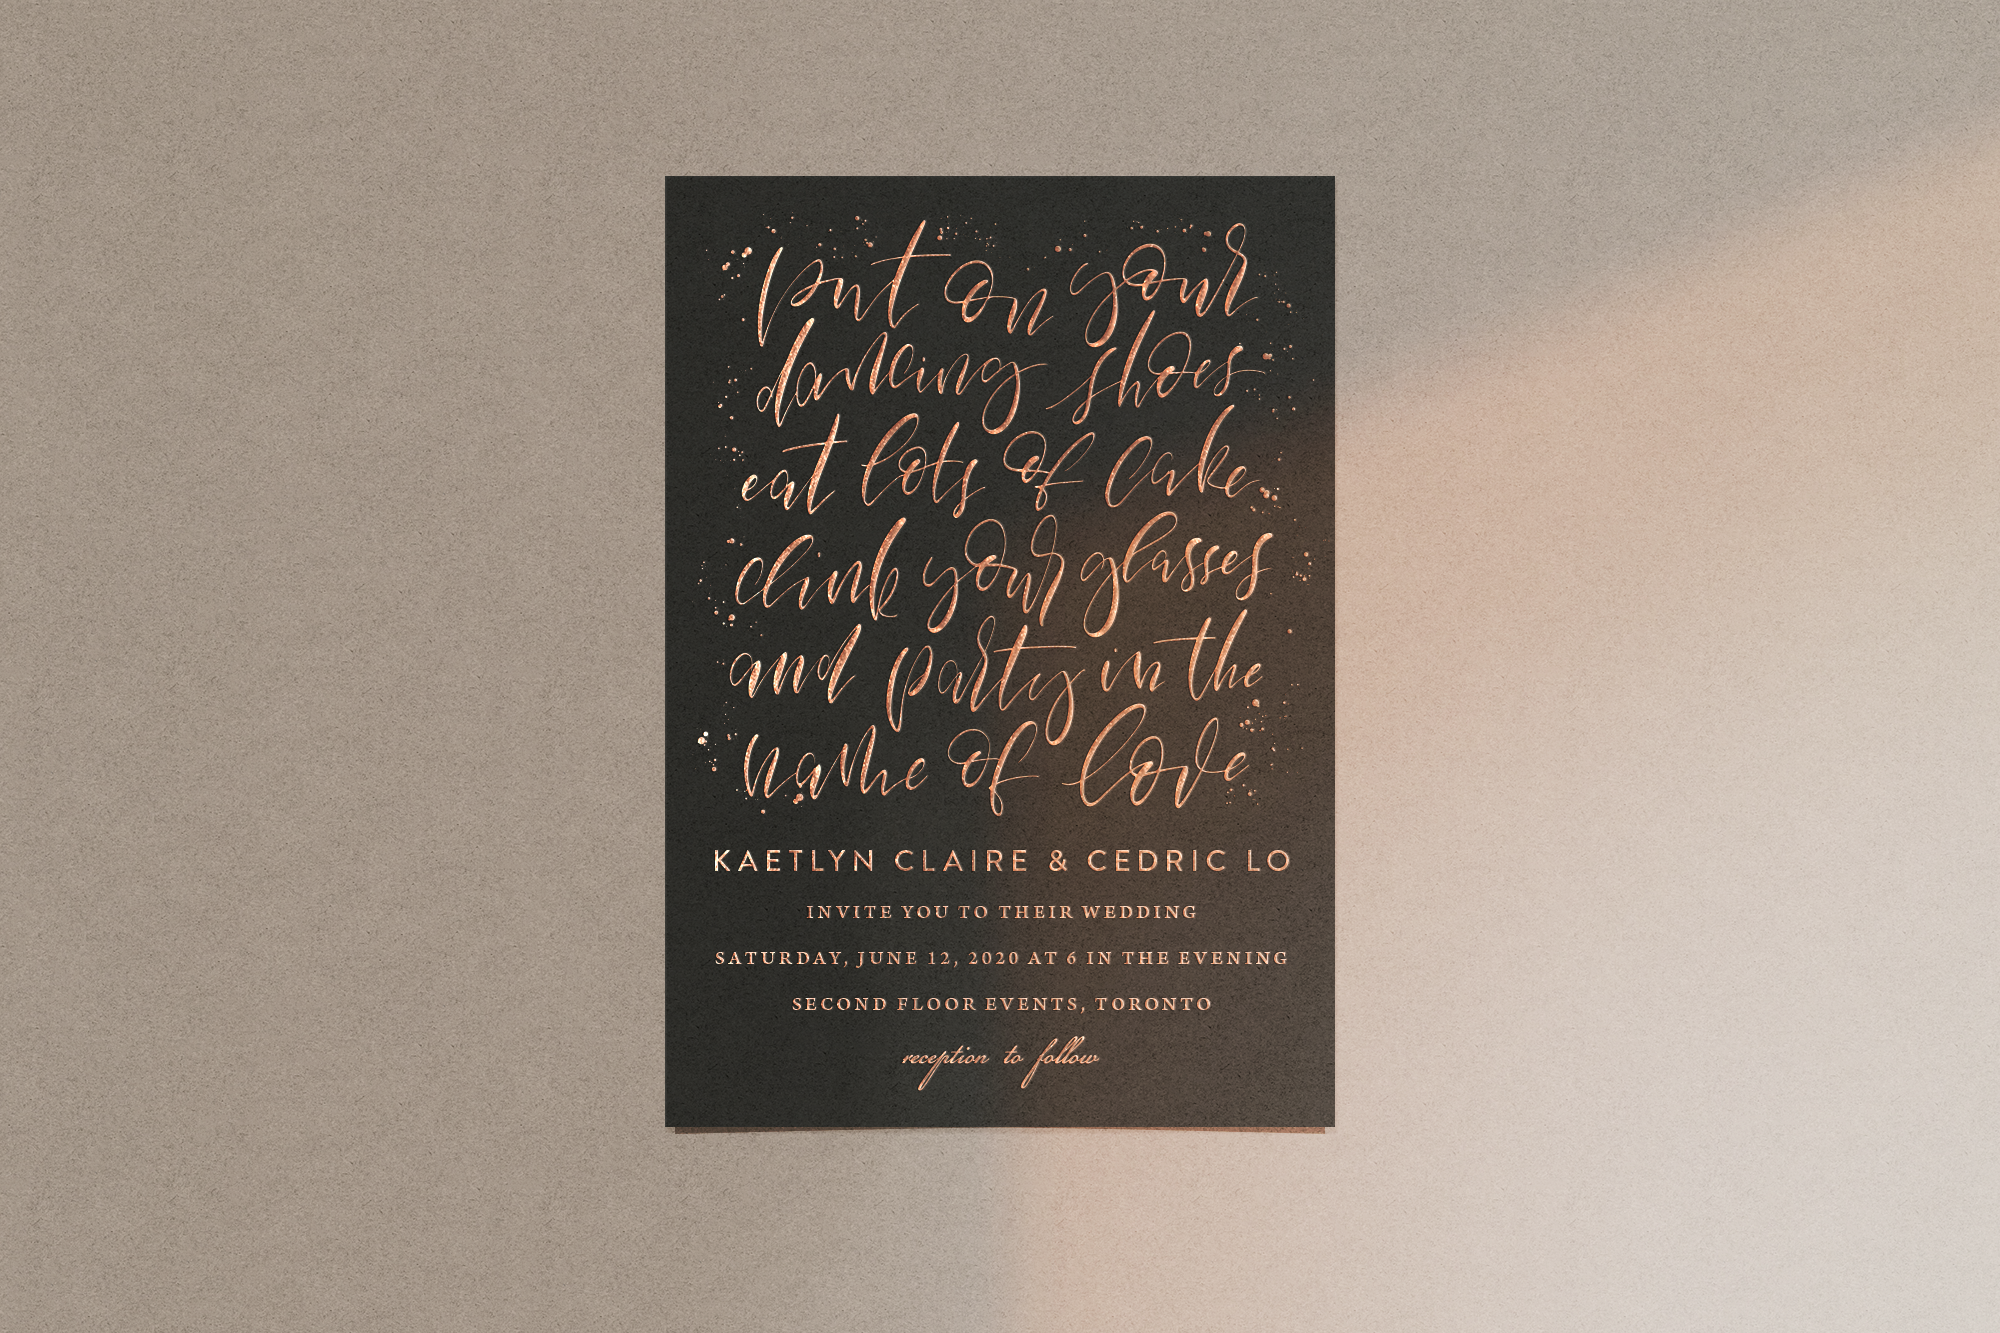 put on your
dancing shoes
eat lots of cake
clink your glasses
and party in the
name of love
KAETLYN CLAIRE & CEDRIC LO
INVITE YOU TO THEIR WEDDING
SATURDAY, JUNE 12, 2020 AT 6 IN THE EVENING
SECOND FLOOR EVENTS, TORONTO
reception to follow